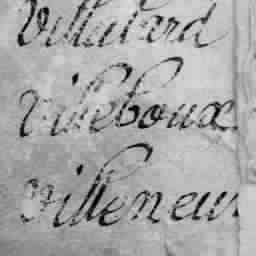 Villalard
Villeboux
Villeneu